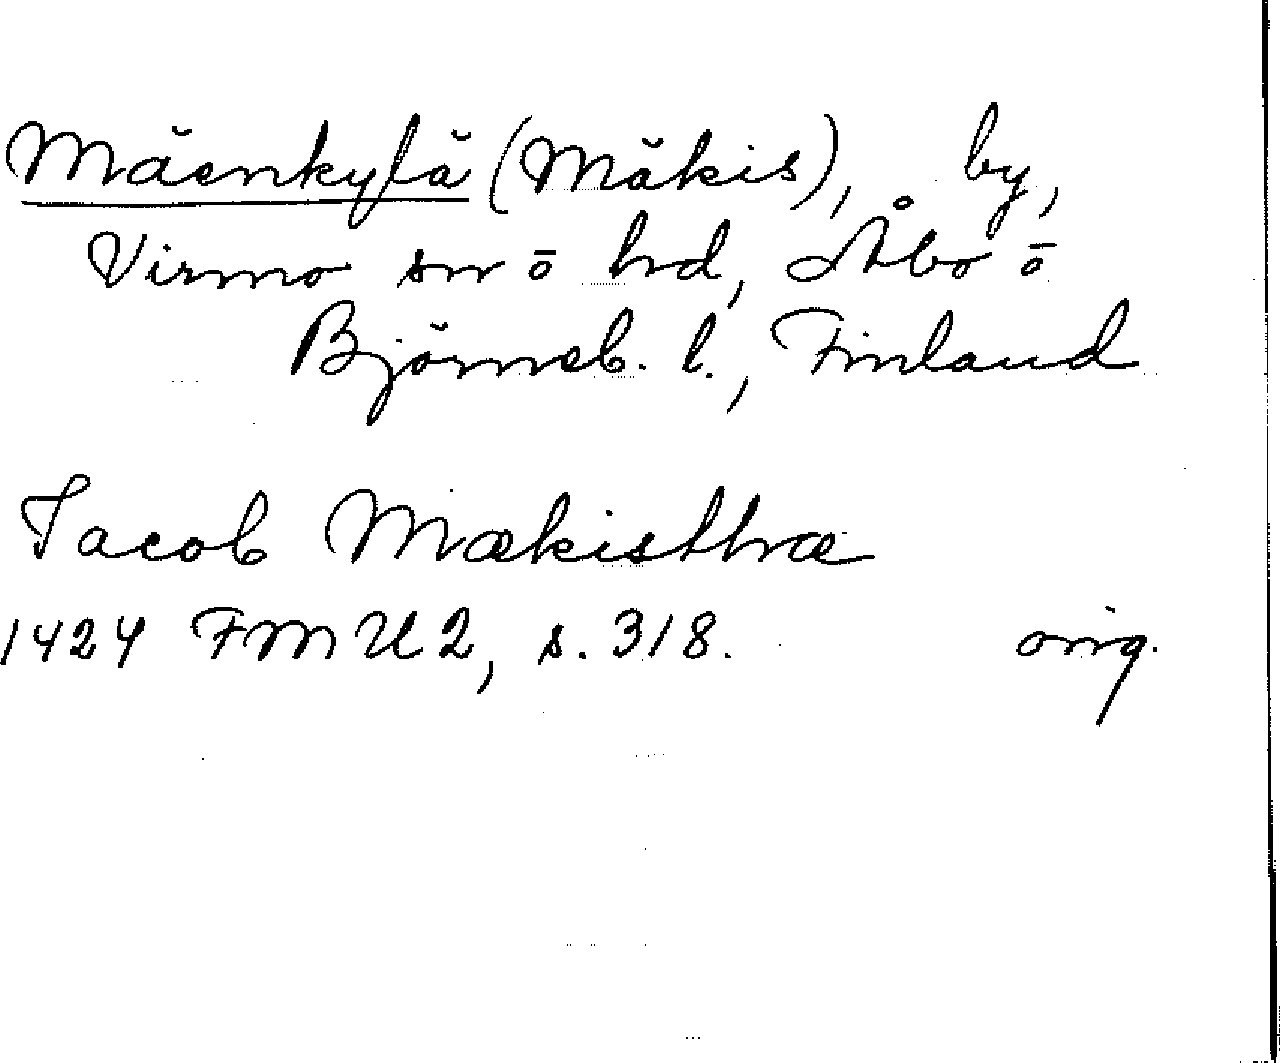 Mäenkylä (Mäkis), by,
Virmo sn o hd, Åbo o
Björneb. l., Finland
Jacob Mækisthræ
1424 FMU 2, s. 318. orig.